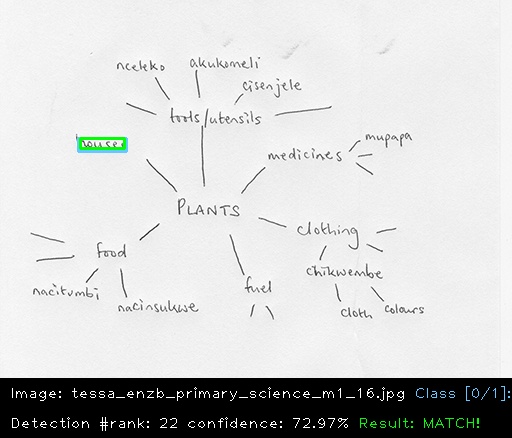 nceleko
akukomeli
cisenjele
tools/utensils
houses
mupapa
medicines
PLANTS
clothing
food
chikwembe
nacitumbi
fuel
nacinsukwe
cloth
colours
Image: tessa_enzb_primary_science_m1_16.jpg Class [0/1]:
Detection #rank: 22 confidence: 72.97% Result: MATCH!